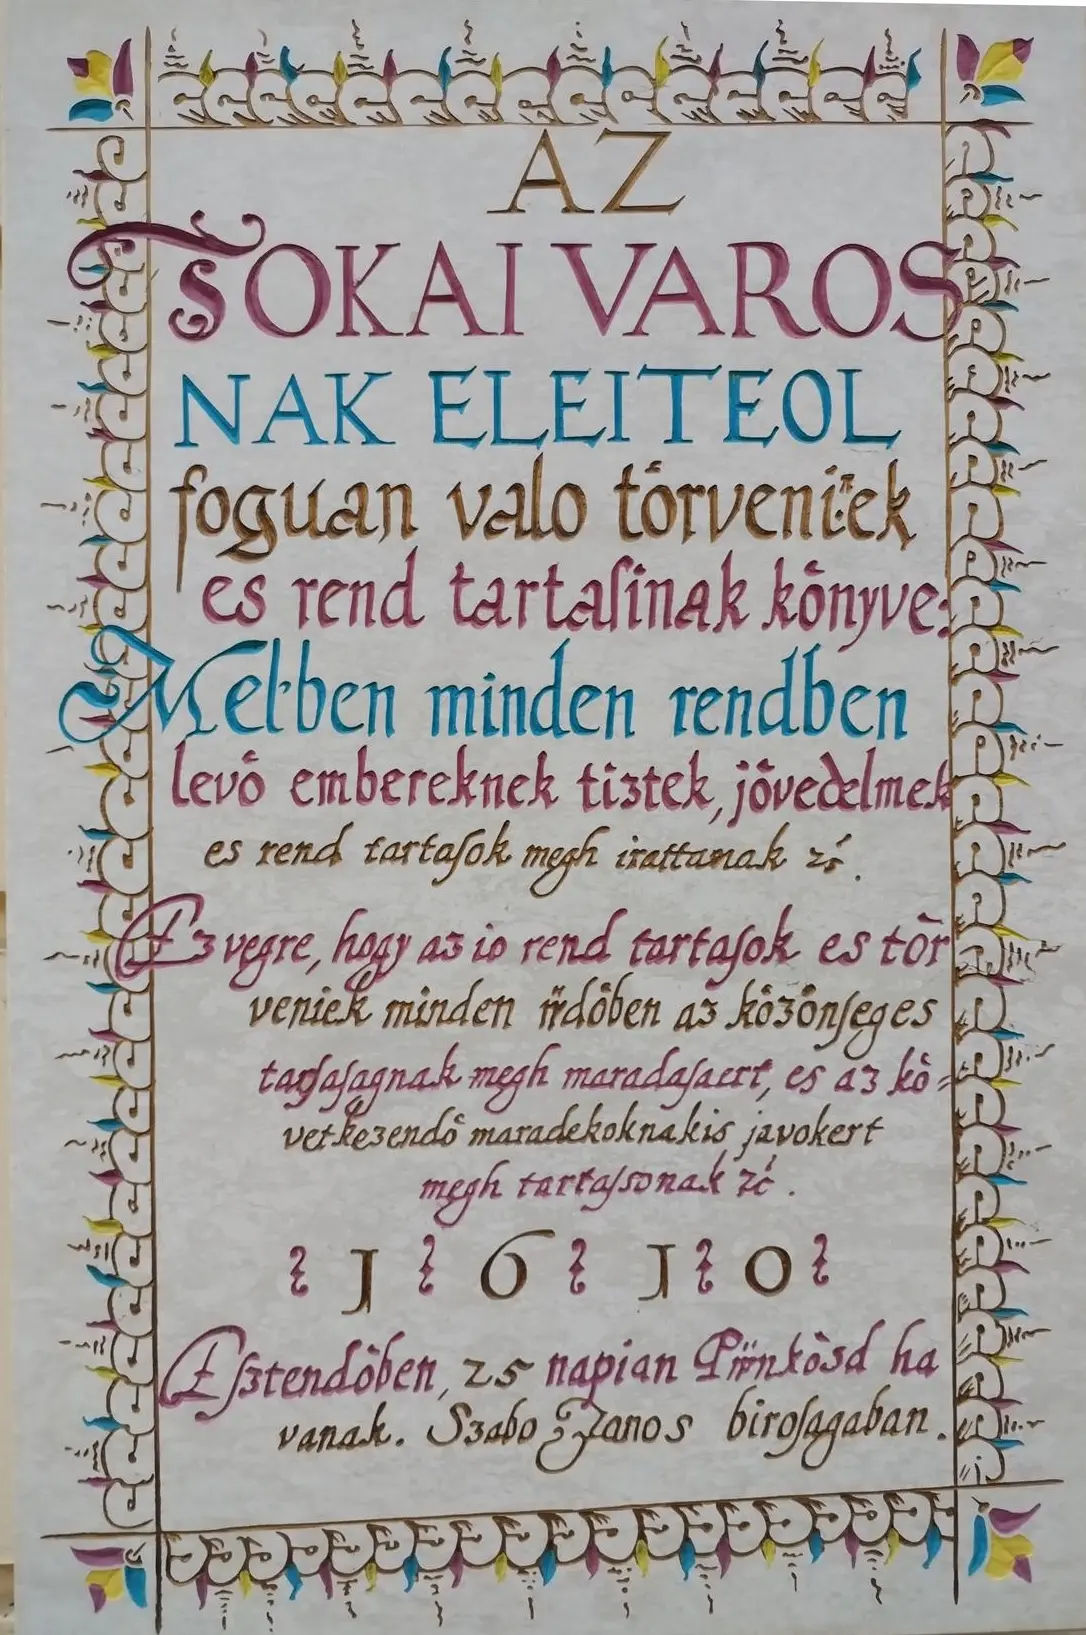 AZ
TOKAI VAROS
NAK ELEITEOL
foguan valo tòrveniek
es rend tartaſinak kònyve:
Melben minden rendben
levò embereknek tiʒtek, jòvedelmek
es rend tartaſok megh irattanak zc.
Eʒ vegre, hogy aʒ io rend tartaſok es tòr
veniek minden ÿdòben aʒ kòʒònſeges
tarſaſagnak megh maradaſaert, es aʒ kò=
vetkeʒendò maradekoknakis javokert
megh tartaſsonak zc.
1 6 1 0
Eſʒtendòben, 25 napian Pÿnkòsd ha
vanak. Sʒabo Janos biroſagaban.